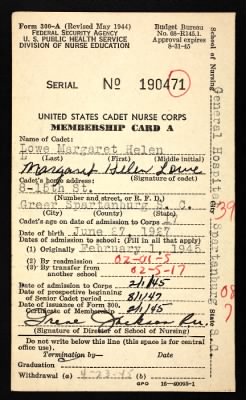 Form 300-A (Revised May 1944)
FEDERAL SECURITY AGENCY
U. S. PUBLIC HEALTH SERVICE
DIVISION OF NURSE EDUCATION
Budget Bureau
No. 68-R145.1.
Approval expires
8-31-45
SERIAL No 190471 1
UNITED STATES CADET NURSE CORPS
MEMBERSHIP CARD A
Name of Cadet:
Lowe Margaret Helen
(Last) (First) (Middle initial)
Margaret Helen Lowe
Cadet's home address: (Signature of cadet)
8-15th St.
(Number and street, or R. F. D.)
Greer Spartanburg S. C.
(City) (County) (State)
Cadet's age on date of admission to Corps 17
Date of birth June 27, 1927
Dates of admission to school: (Fill in all that apply)
(1) Originally February 1, 1945
(2) By readmission 02-01-5
(3) By transfer from another school 02-5-17
Date of admission to Corps 2/1/45
Date of prospective beginning of Senior Cadet period 8/1/47
Date of issuance of Form 300, Certificate of Membership
Irene Jackson R.N.
(Signature of Director of School of Nursing)
Do not write below this line (this space is for central office use).
Termination by— Date
Graduation
Withdrawal (a)
GPO 16-40093-1
School of Nursing General Hospital Spartanburg S. C.
39
08
7